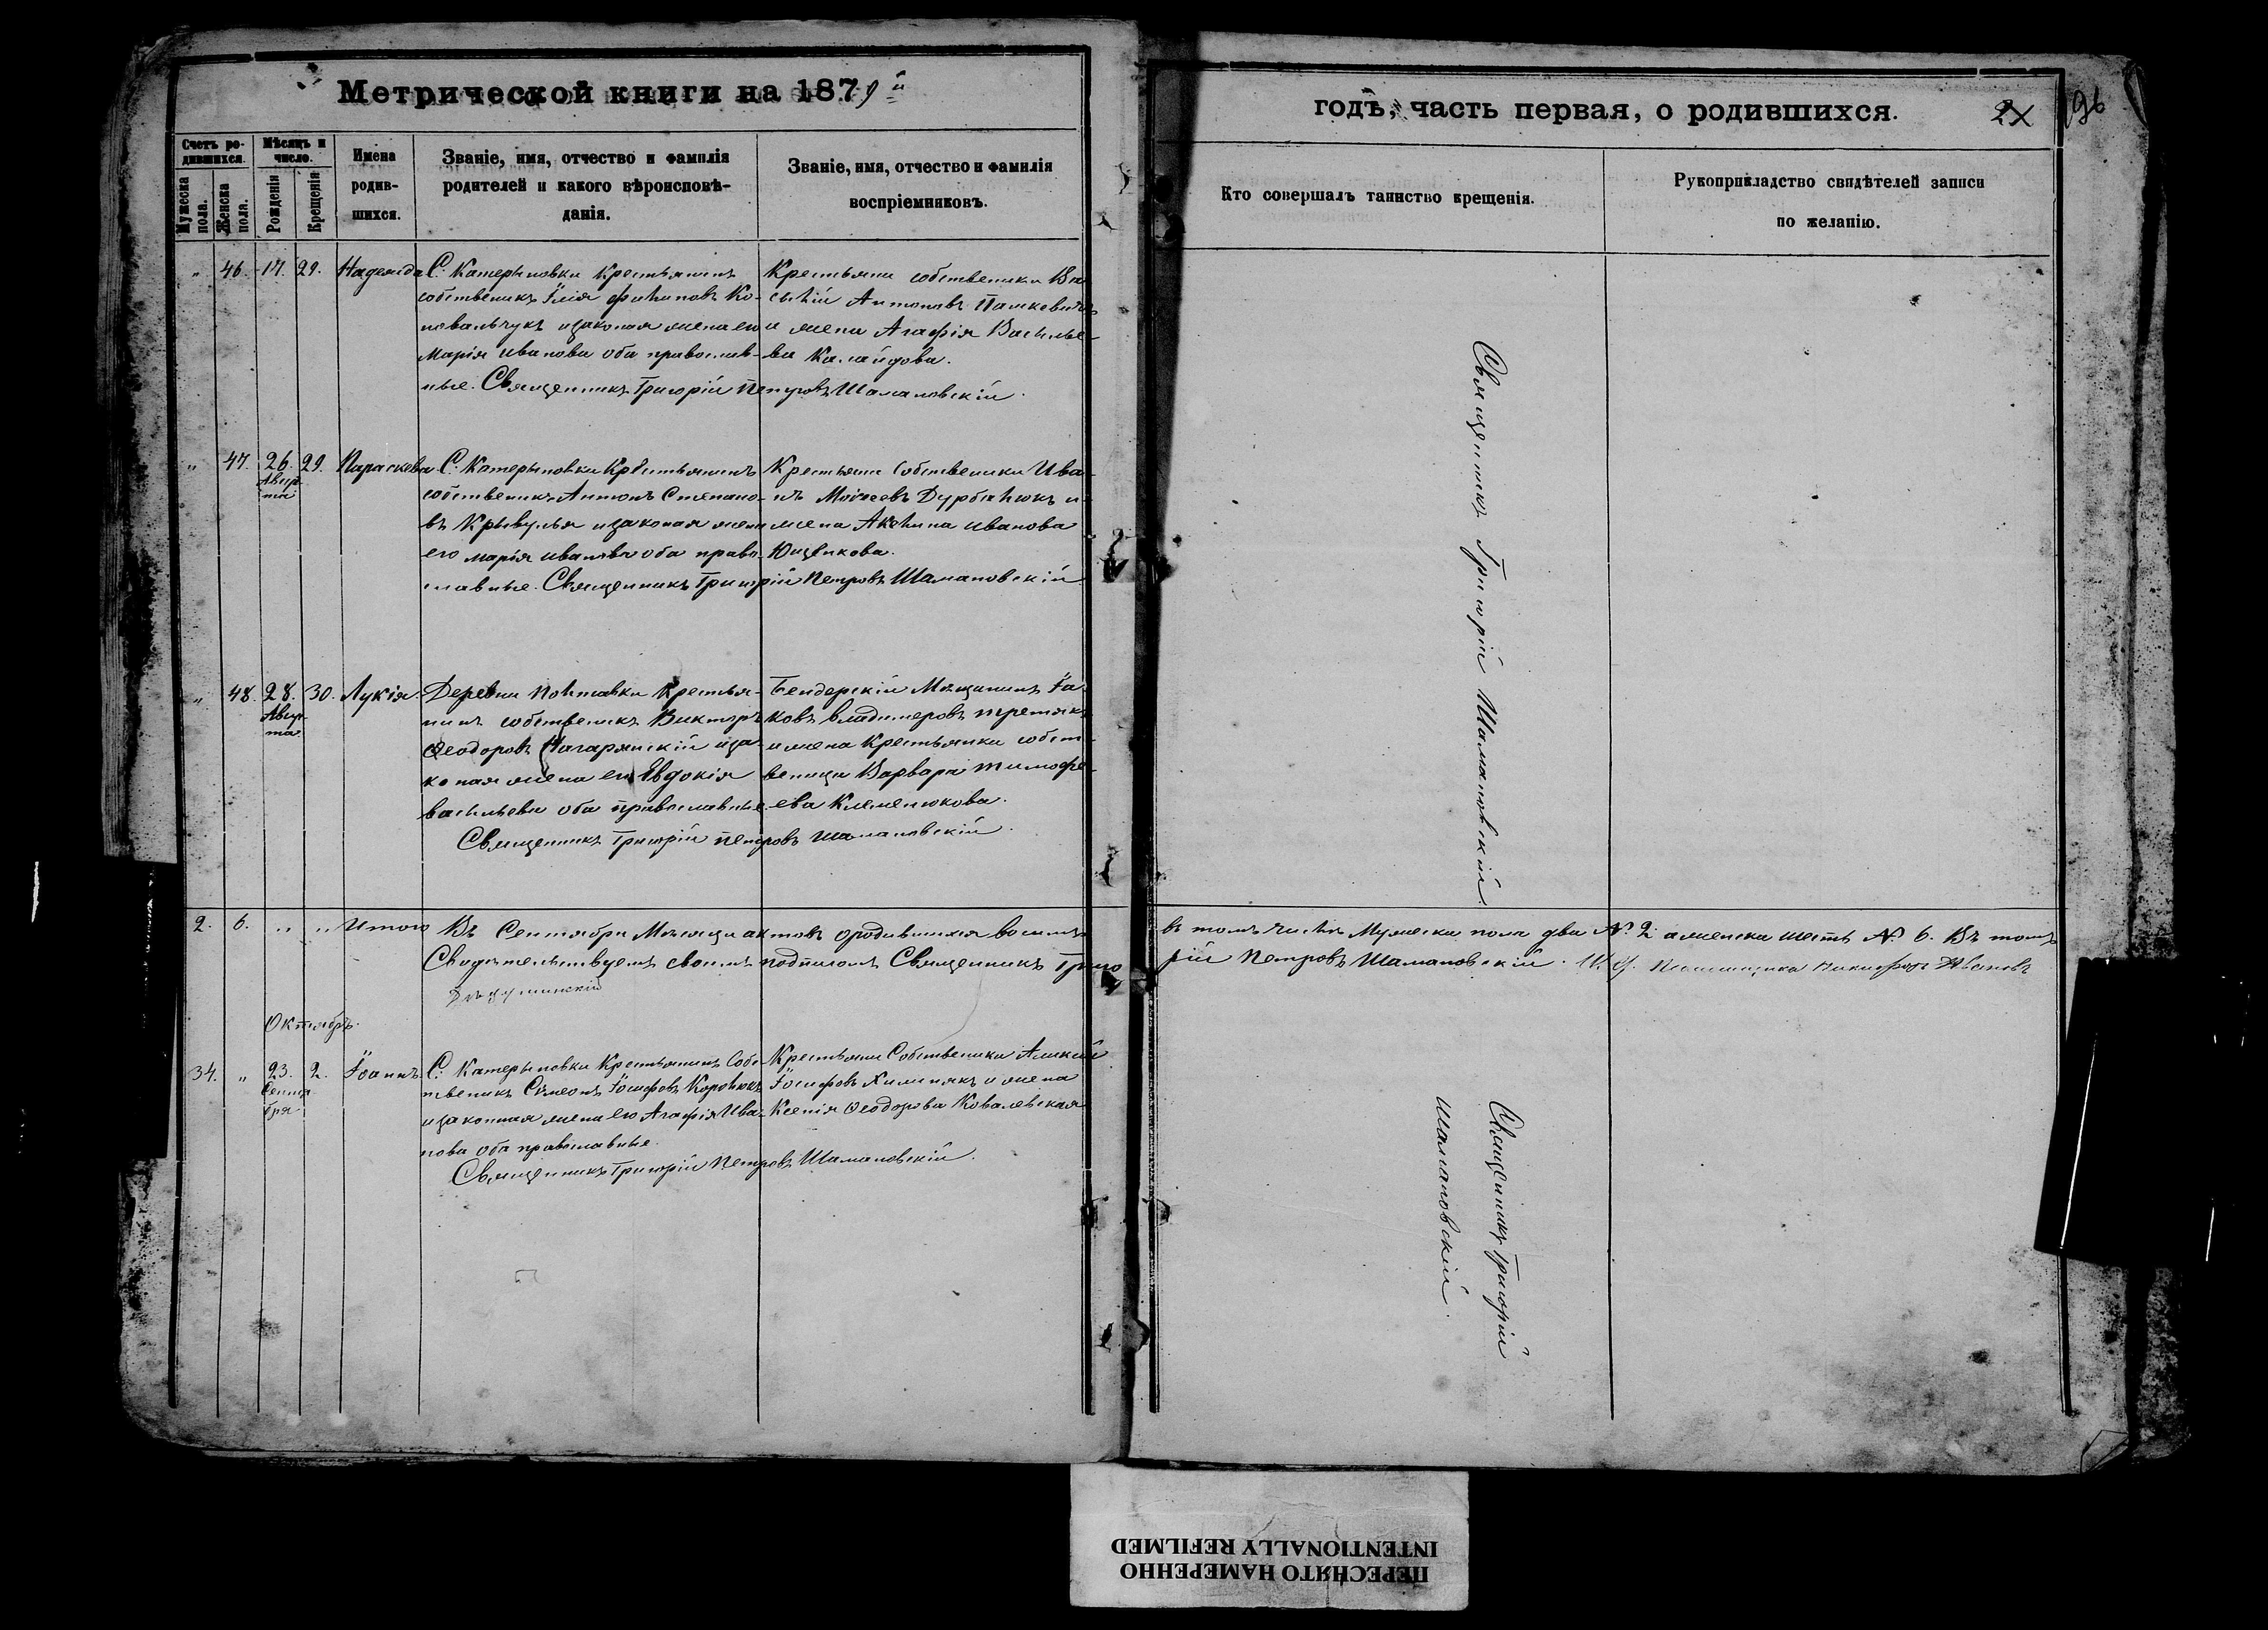 Метрической книги на 1879 й
годъ, часть первая, о родившихся.
2х
Счетъ ро-
дившихся.
Мужеска пола.
Женска пола.
Мѣсяцъ и
число.
Рожденія
Крещенія
Имена
родив-
шихся.
Званіе, имя, отчество и фамилія
родителей и какого вѣроисповѣ-
данія.
Званіе, имя, отчество и фамилія
воспріемниковъ.
Кто совершалъ таинство крещенія.
Рукоприкладство свидѣтелей записи
по желанію.
„ 46. 17. 29. Надежда
С. Катериновки Крестьянинъ
собственикъ Їлія Филиповъ Ко-
новальчукъ изаконая жена его
Марія Иванова оба православ-
ные. Священникъ Григорій Петровъ Шамановскій.
Крестьяни собственики Ва-
силій Антоновъ Пашкевичъ
и жена Агафія Василье-
ва Калайдова.
„ 47. 26. 29. Параскева
Авгус-
та
С. Катериновки Крестьянинъ
собственикъ Антонъ Степано-
въ Кривулья изаконая жена
его Марія Иванова оба право-
славные. Священникъ Григорій Петровъ Шамановскій
Крестьяни Собственики Ива-
нъ Моисеевъ Дурбалюкъ и
жена Акилина Иванова
Ющенкова.
„ 48. 28. 30. Лукія.
Авгус-
та
Деревни Полтавки Крестья-
нинъ собственикъ Викторъ
Феодоровъ Нагарянскій иза-
коная жена его Евдокія
Васильева оба православные
Священникъ Григорій Петровъ Шамановскій.
Бендерскій Мѣщанинъ Їа-
ковъ Владимеровъ Третякъ
и жена Крестьянка собст-
веница Варвара Тимофе-
ева Клеменюкова.
Священникъ Григорій Шамановскій.
2. 6. „ „ Итого
Въ Сентябри Мѣсяци актовъ ородившихся восимъ
въ томъ числѣ Мужеска пола два №. 2. аженска шесть №. 6. Въ томъ
Свидѣтельствуемъ своимъ подписомъ Священникъ Григо
рій Петровъ Шамановскій. И. д. Псаломщика Никифоръ
Октябрь.
34. „ 23. 2. Їоаннъ.
Сентя
бря
С. Катериновки Крестьянинъ Собс-
твеникъ Симеонъ Їосифовъ Королюкъ
изаконная жена его Агафія Ива-
нова оба православные.
Священникъ Григорій Петровъ Шамановскій.
Крестьяни Собственики
Їосифовъ Хилинякъ и жена
Ксенія Феодорова Ковалевская
Священникъ Григорій
Шамановскій.
ПЕРЕСНЯТО НАМЕРЕННО
INTENTIONALLY REFILMED